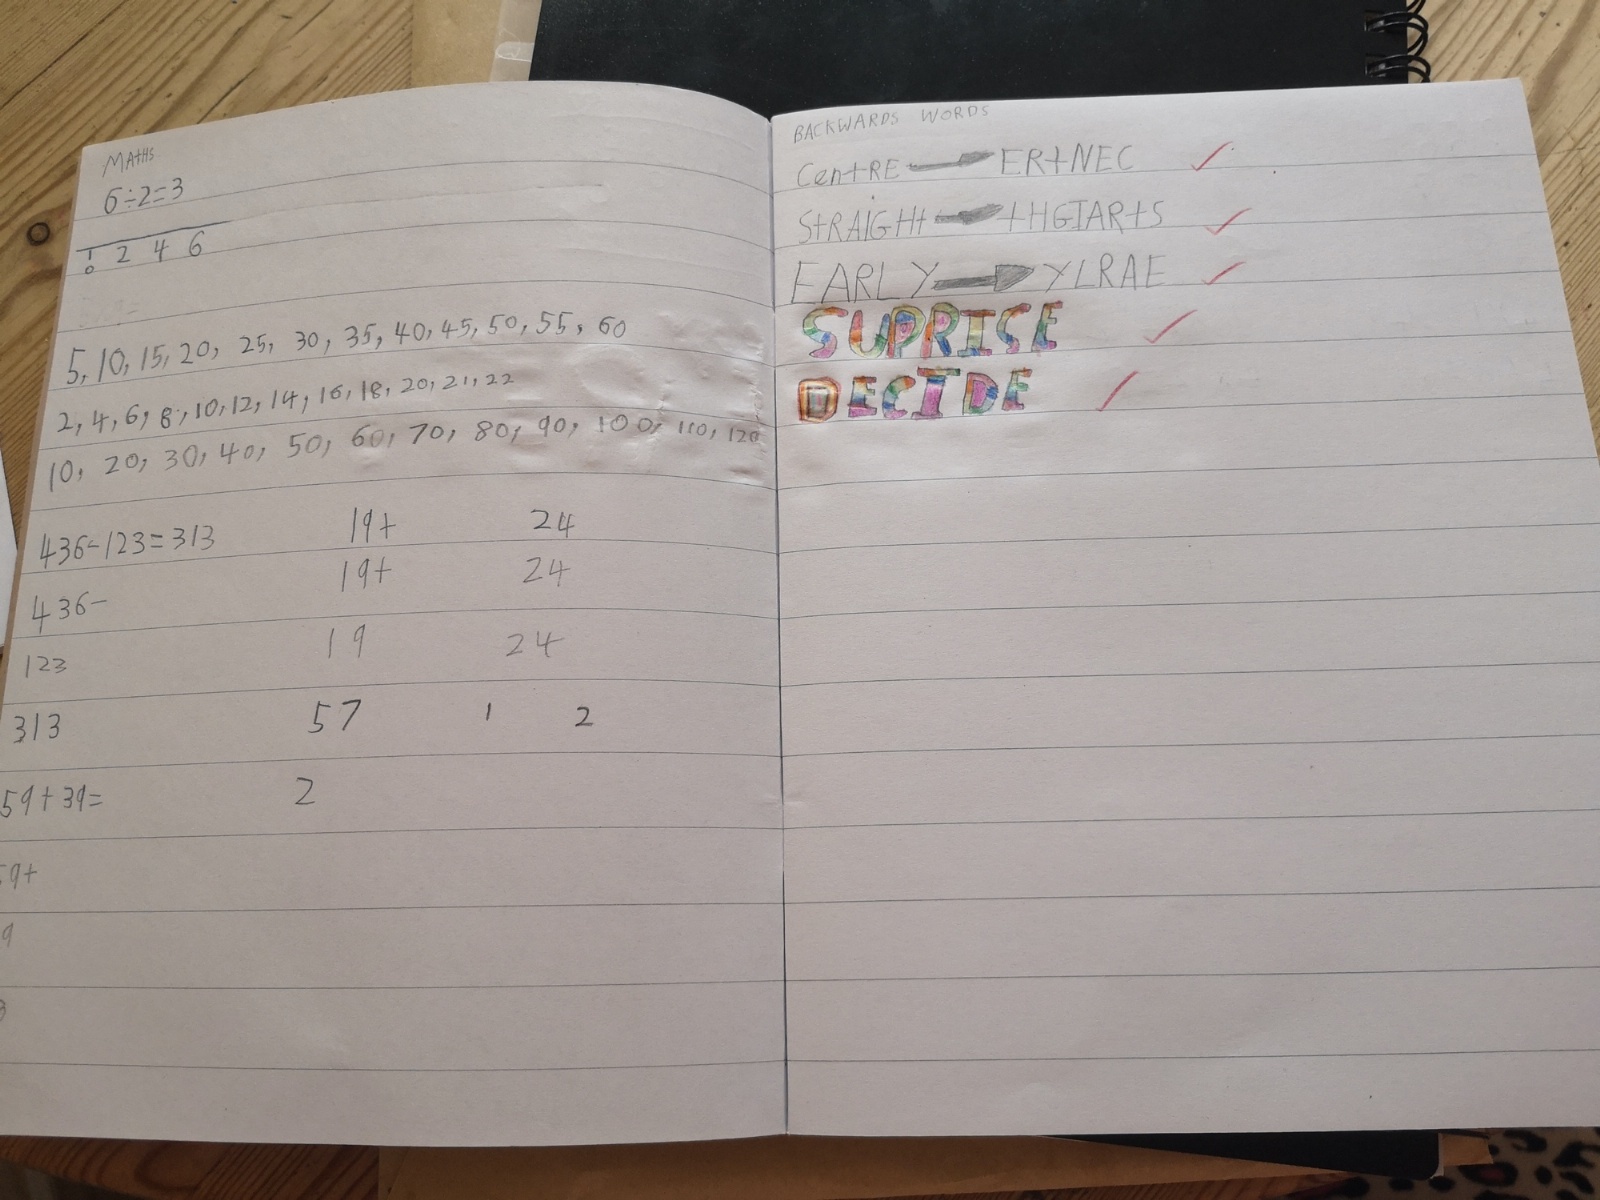 MATHS
6÷2=3
÷ 2 4 6
5, 10, 15, 20, 25, 30, 35, 40, 45, 50, 55, 60
2, 4, 6, 8, 10, 12, 14, 16, 18, 20, 21, 22
10, 20, 30, 40, 50, 60, 70, 80, 90, 100, 110, 120
436-123=313 19+ 24
436- 19+ 24
123 19 24
313 57 1 2
59+39= 2
59+
9
BACKWARDS WORDS
CentRE ERtNEC
StRAIGHt tHGIARtS
EARLY YLRAE
SUPRISE
DECIDE